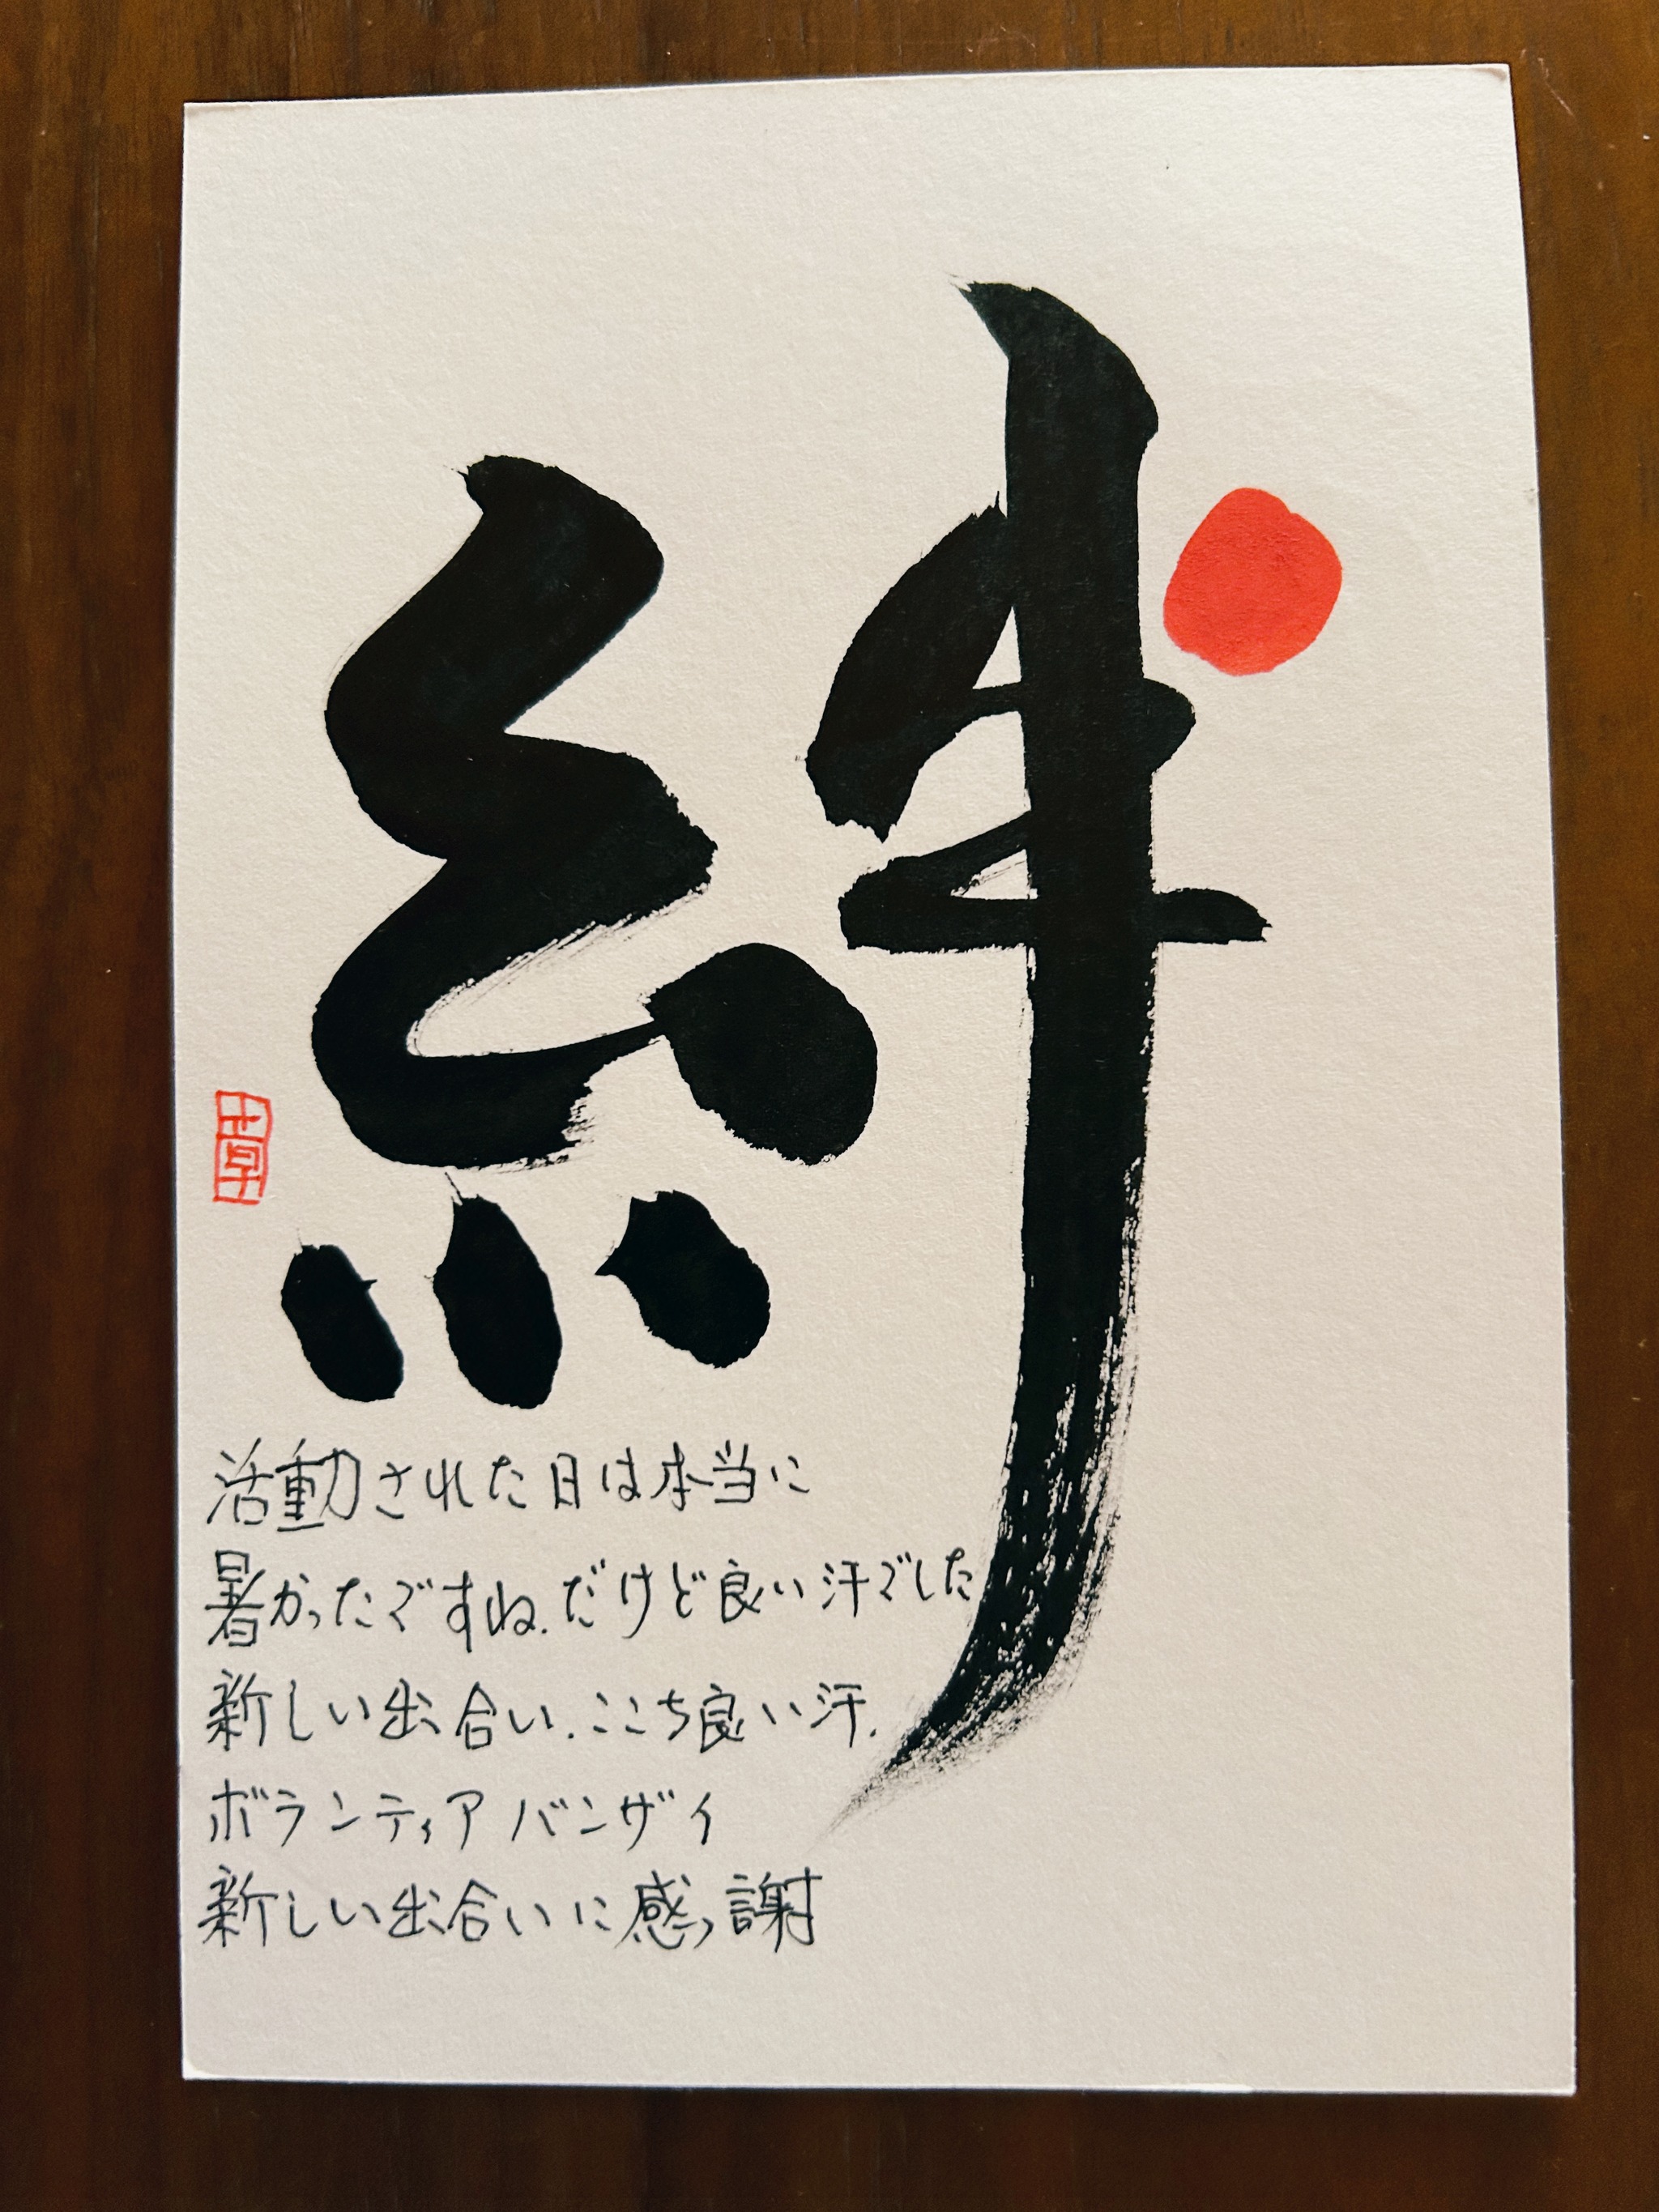 絆
活動された日は本当に
暑かったですね.だけど良い汗でした
新しい出合い.ここち良い汗.
ボランティア バンザイ
新しい出合いに感謝